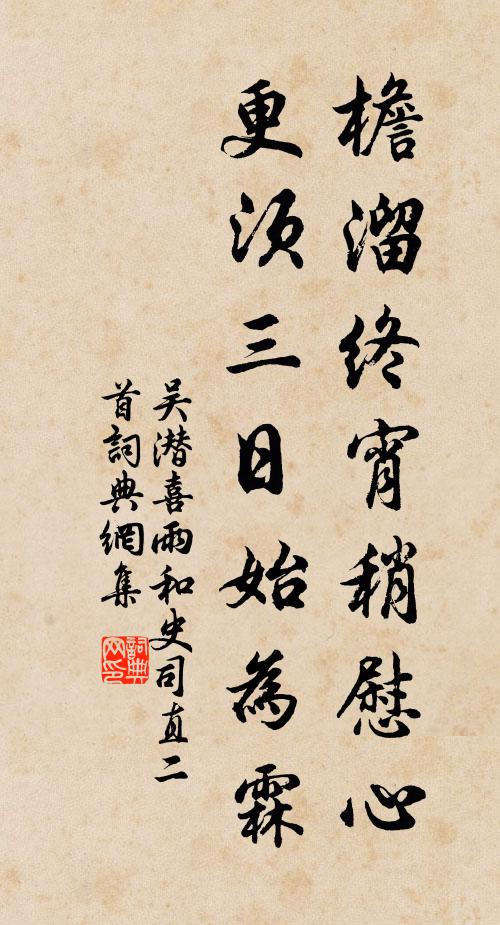 檐溜終宵稍慰心
更須三日始為霖
吴潛喜雨和史司直二
首詞典網集
詞典
网印